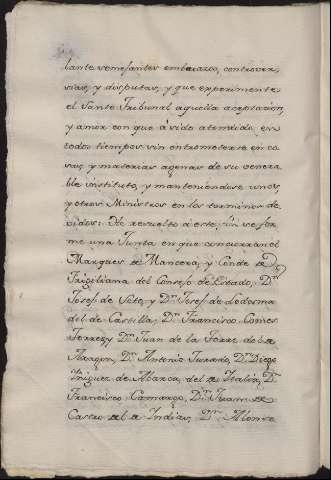 lante semejantes embarazos, controver,
sias, y disputas, y que experimente
el Santo Tribunal aquella aceptacion,
y amor con que à sido atendido en
todos tiempos sin entrometerse en co
sas, y materias agenas de su venera
ble instituto, y manteniendose unos,
y otros Ministros en los terminos de
vidos: He resuelto à este fin se for
me una Junta en que concurran el
Marques de Mancera, y Conde de
Frigiliana del Consejo de Estado, Dn
Josef de Soto, y Dn Josef de Ledesma
del de Castilla, Dn Francisco Gomes
Torres, y Dn Juan de la Torre del de
Aragon, Dn Antonio Jurado, Dn Diego
Iñiguez de Abarca, del de Italia, Dn
Francisco Camargo, Dn Juan de
Castro del de Indias, Dn Alonso